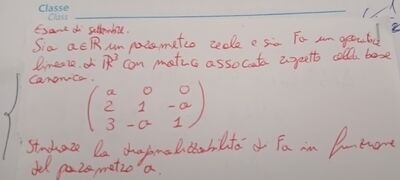 Classe
Class
Esame di settembre.
Sia a∈ℝ un parametro reale e sia Fa un operatore
lineare di ℝ³ con matrice associata rispetto alla base
canonica.
( a 0 0 )
( 2 1 -a )
( 3 -a 1 )
Studiare la diagonalizzabilità di Fa in funzione
del parametro a.